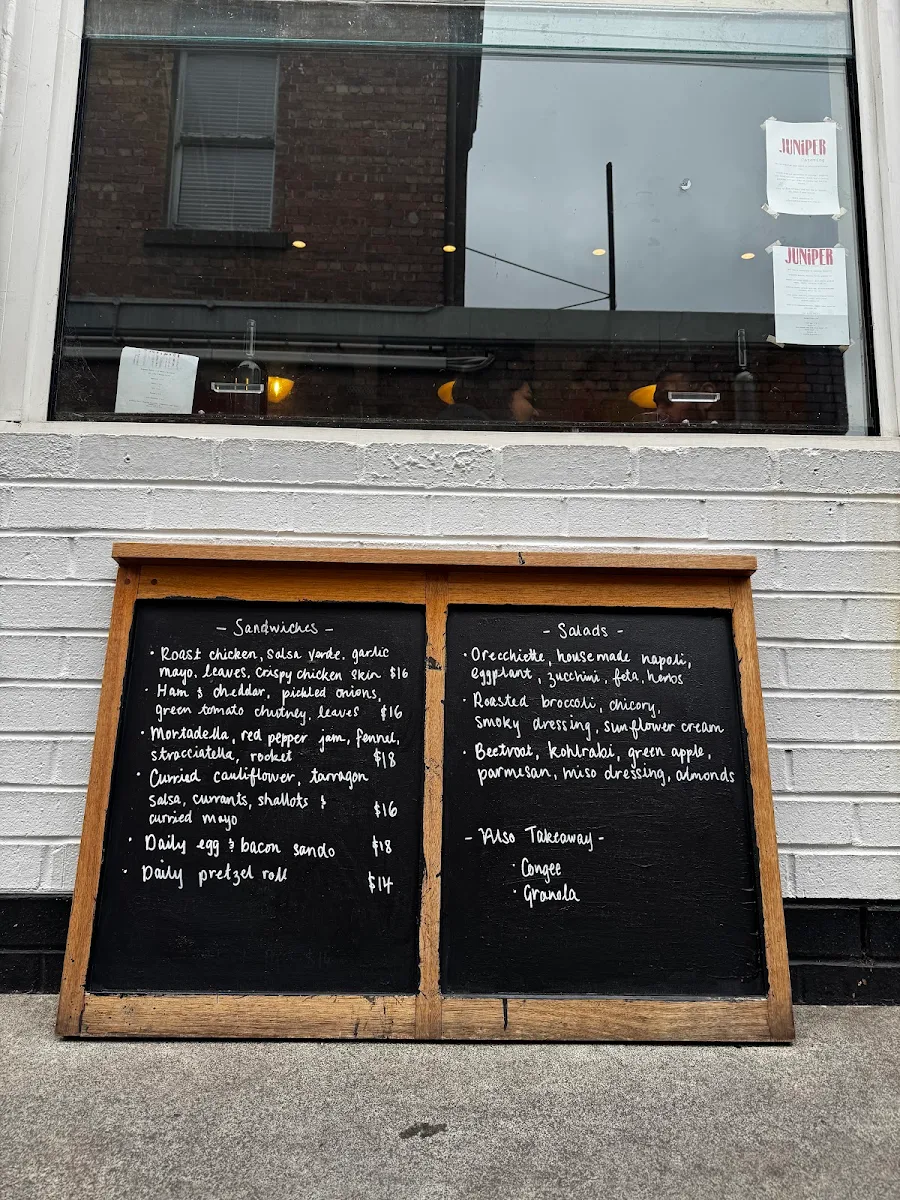 JUNiPER
JUNiPER
- Sandwiches -
• Roast chicken, salsa verde, garlic
mayo, leaves, crispy chicken skin $16
• Ham & cheddar, pickled onions,
green tomato chutney, leaves $16
• Mortadella, red pepper jam, fennel,
stracciatella, rocket $18
• Curried cauliflower, tarragon
salsa, currants, shallots &
curried mayo $16
• Daily egg & bacon sando $18
• Daily pretzel roll $14
- Salads -
• Orecchiette, housemade napoli,
eggplant, zucchini, feta, herbs
• Roasted broccoli, chicory,
smoky dressing, sunflower cream
• Beetroot, kohlrabi, green apple,
parmesan, miso dressing, almonds
- Also Takeaway -
• Congee
• Granola